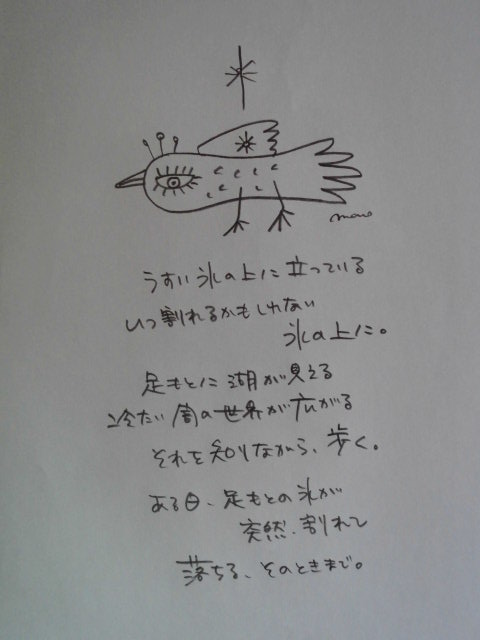 mano
うすい氷の上に立っている
いつ割れるかもしれない
氷の上に。
足もとに湖が見える
冷たい闇の世界が広がる
それを知りながら、歩く。
ある日、足もとの氷が
突然、割れて
落ちる、そのときまで。